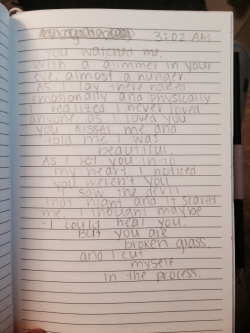 3:02 AM
You watched me.
With a glimmer in your
eye, almost a hunger.
As I lay there naked
emotionally and physically
realized I never loved
anyone as I loved you
you kissed me and
told me I was
beautiful.
As I let you in to
my heart I noticed
you weren't you.
I saw the devil
that night and it scared
me. I thought maybe
I could heal you.
But you are
broken glass.
and I cut
myself
in the process.